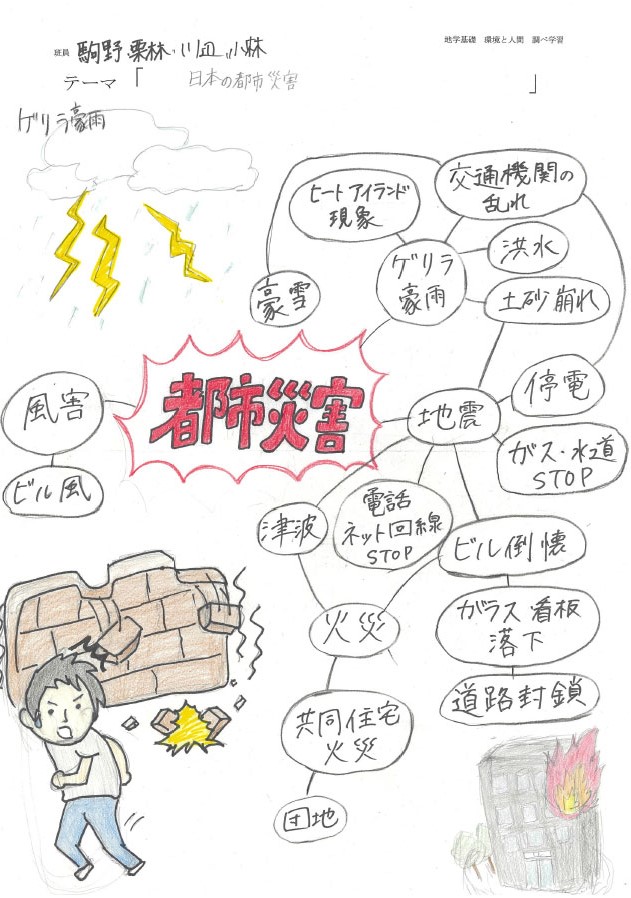 地学基礎 環境と人間 調べ学習
班員 駒野 栗林 川辺 小林
テーマ「 日本の都市災害 」
ゲリラ豪雨
ヒートアイランド
現象
交通機関の
乱れ
豪雪
ゲリラ
豪雨
洪水
土砂崩れ
風害
都市災害
地震
停電
ビル風
ガス・水道
STOP
津波
電話
ネット回線
STOP
ビル倒壊
火災
ガラス 看板
落下
共同住宅
火災
道路封鎖
団地